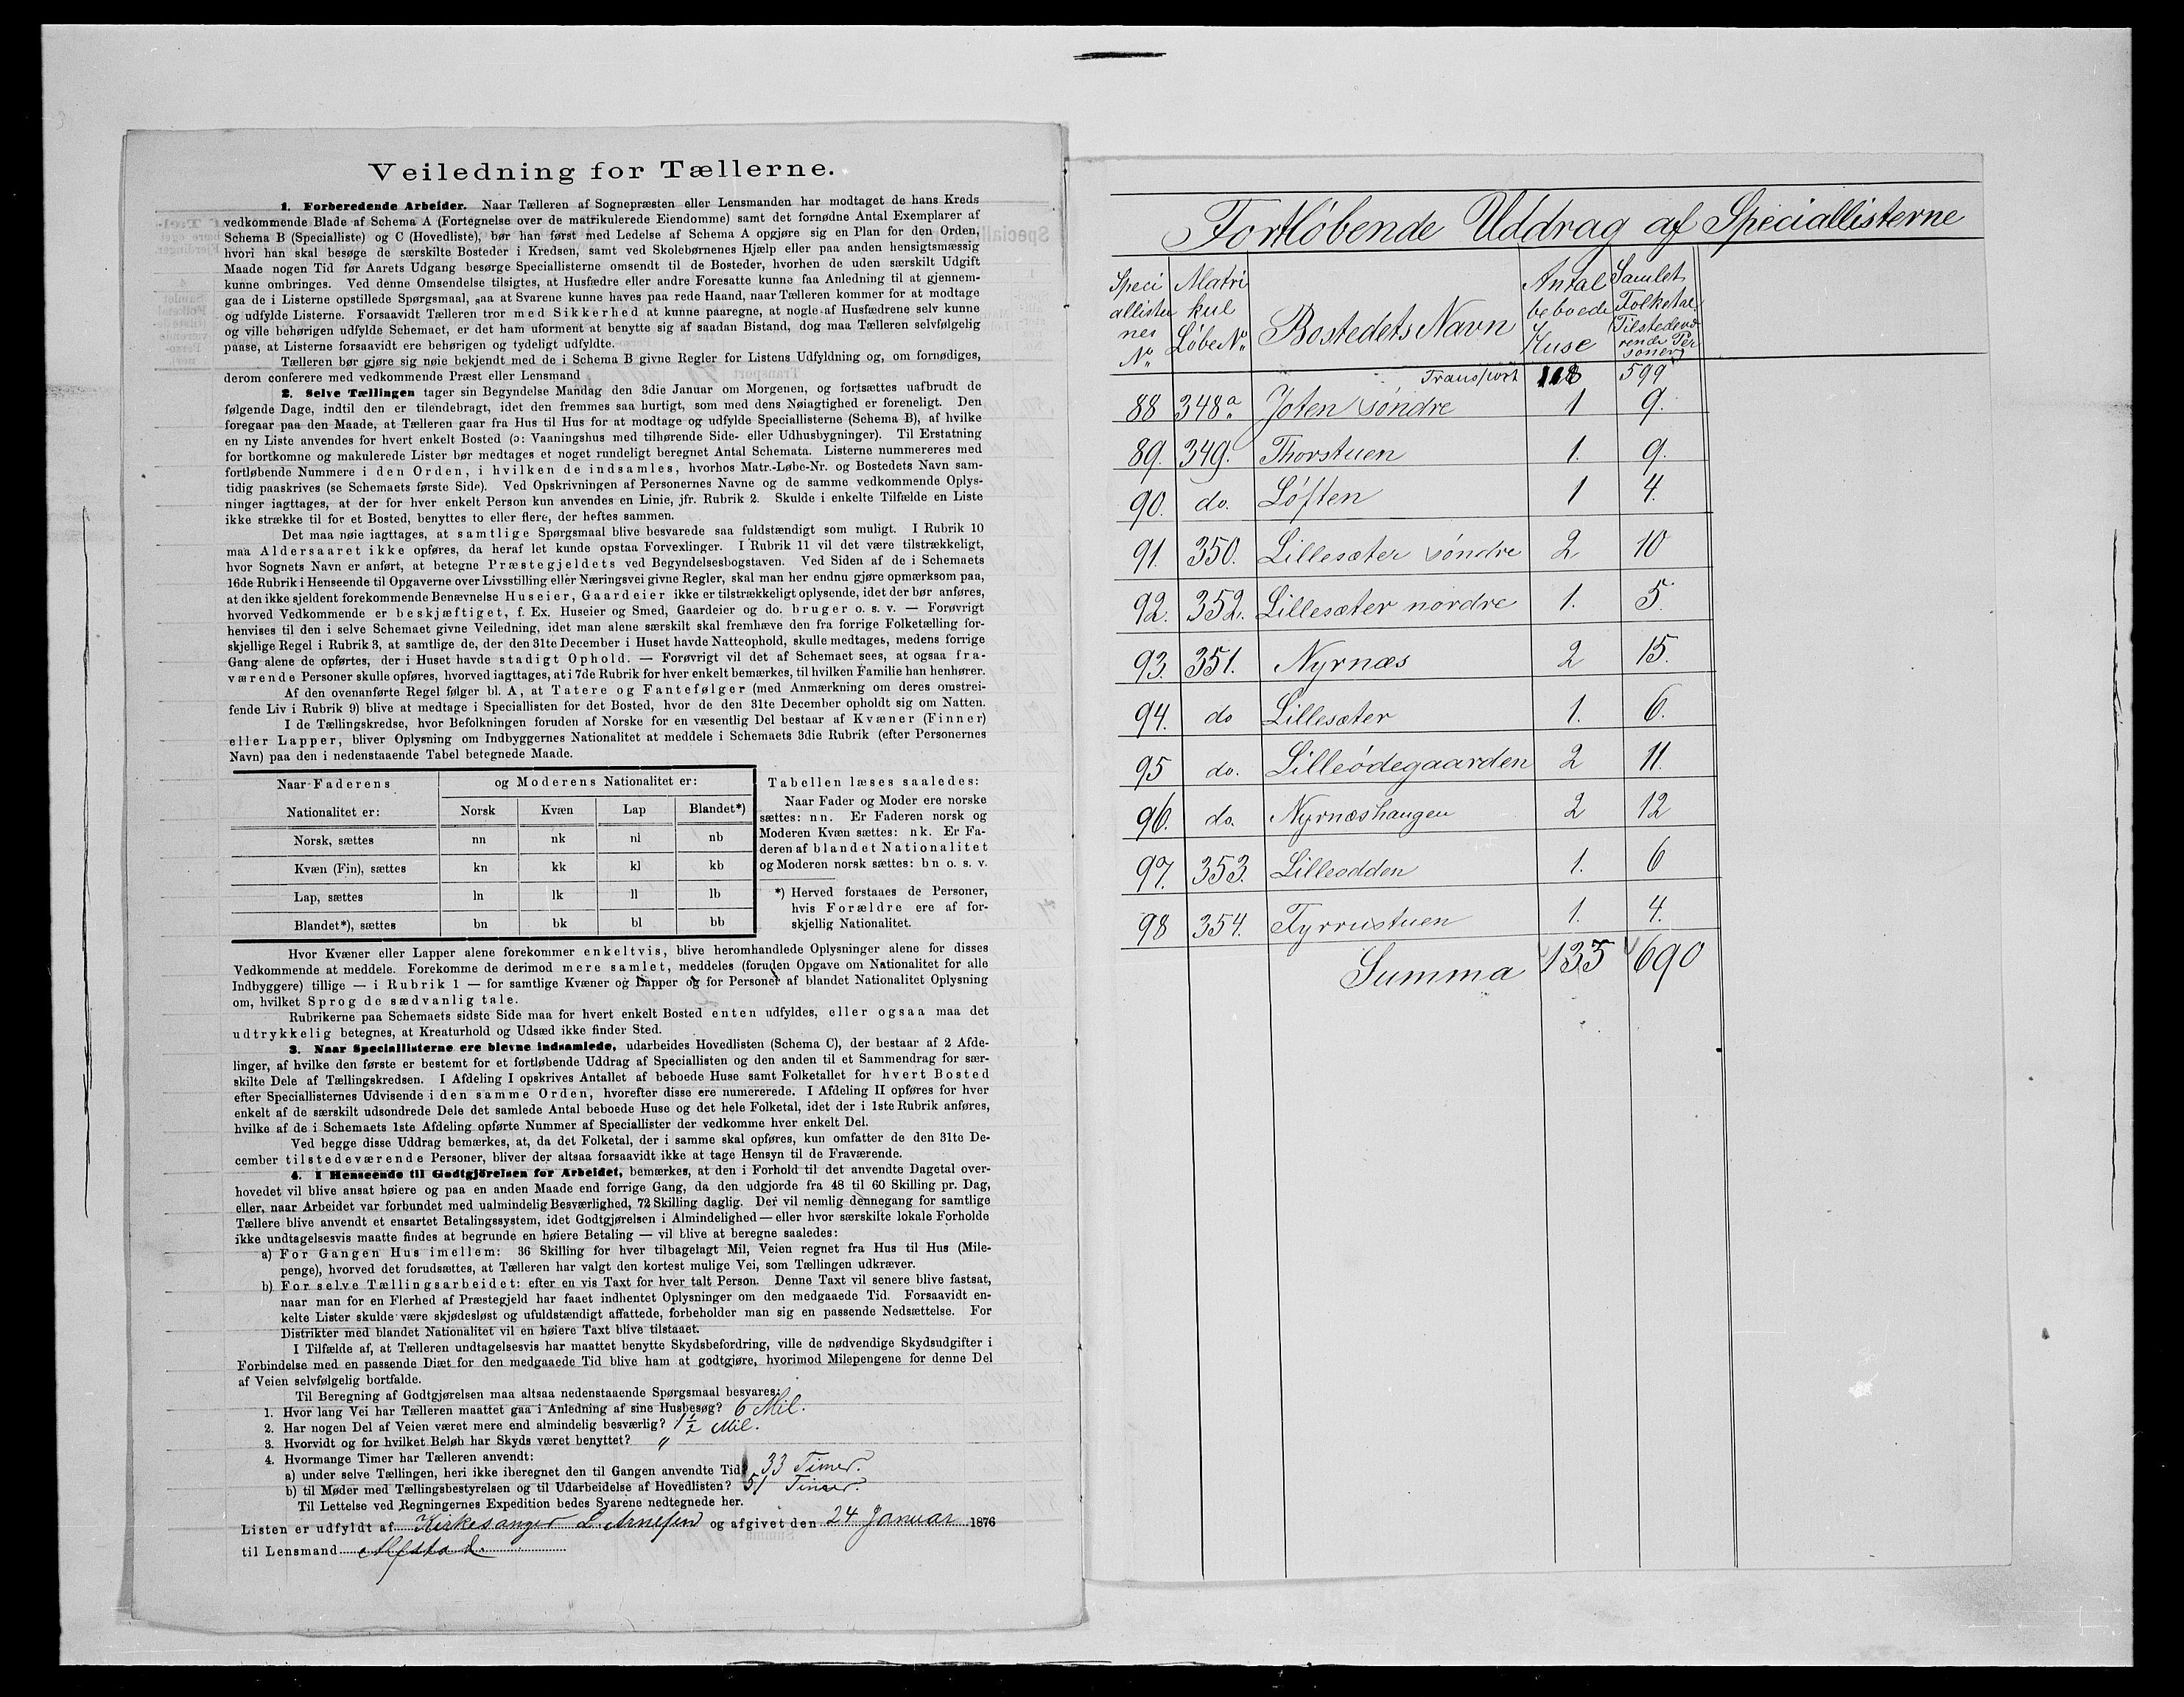 Veiledning for Tællerne.
1. Forberedende Arbeider. Naar Tælleren af Sognepræsten eller Lensmanden har modtaget de hans Kreds
vedkommende Blade af Schema A (Fortegnelse over de matrikulerede Eiendomme) samt det fornødne Antal Exemplarer af
Schema B (Specialliste) og C (Hovedliste), bør han først med Ledelse af Schema A opgjøre sig en Plan for den Orden,
hvori han skal besøge de særskilte Bosteder i Kredsen, samt ved Skolebørnenes Hjælp eller paa anden hensigtsmæssig
Maade nogen Tid før Aarets Udgang besørge Speciallisterne omsendt til de Bosteder, hvorhen de uden særskilt Udgift
kunne ombringes. Ved denne Omsendelse tilsigtes, at Husfædre eller andre Foresatte kunne faa Anledning til at gjennem-
gaa de i Listerne opstillede Spørgsmaal, saa at Svarene kunne haves paa rede Haand, naar Tælleren kommer for at modtage
og udfylde Listerne. Forsaavidt Tælleren tror med Sikkerhed at kunne paaregne, at nogle af Husfædrene selv kunne
og ville behørigen udfylde Schemaet, er det ham uforment at benytte sig af saadan Bistand, dog maa Tælleren selvfølgelig
paase, at Listerne forsaavidt ere behørigen og tydeligt udfyldte.
Tælleren bør gjøre sig nøie bekjendt med de i Schema B givne Regler for Listens Udfyldning og, om fornødiges,
derom conferere med vedkommende Præst eller Lensmand
2. Selve Tællingen tager sin Begyndelse Mandag den 3die Januar om Morgenen, og fortsættes uafbrudt de
følgende Dage, indtil den er tilendebragt, idet den fremmes saa hurtigt, som med dens Nøiagtighed er foreneligt. Den
foregaar paa den Maade, at Tælleren gaar fra Hus til Hus for at modtage og udfylde Speciallisterne (Schema B), af hvilke
en ny Liste anvendes for hvert enkelt Bosted (ɔ: Vaaningshus med tilhørende Side- eller Udhusbygninger). Til Erstatning
for bortkomne og makulerede Lister bør medtages et noget rundeligt beregnet Antal Schemata. Listerne nummereres med
fortløbende Nummere i den Orden, i hvilken de indsamles, hvorhos Matr.-Løbe-Nr. og Bostedets Navn sam-
tidig paaskrives (se Schemaets første Side). Ved Opskrivningen af Personernes Navne og de samme vedkommende Oplys-
ninger iagttages, at der for hver enkelt Person kun anvendes en Linie, jfr. Rubrik 2. Skulde i enkelte Tilfælde en Liste
ikke strække til for et Bosted, benyttes to eller flere, der heftes sammen.
Det maa nøie iagttages, at samtlige Spørgsmaal blive besvarede saa fuldstændigt som muligt. I Rubrik 10
maa Aldersaaret ikke opføres, da heraf let kunde opstaa Forvexlinger. I Rubrik 11 vil det være tilstrækkeligt,
hvor Sognets Navn er anført, at betegne Præstegjeldets ved Begyndelsesbogstaven. Ved Siden af de i Schemaets
16de Rubrik i Henseende til Opgaverne over Livsstilling eller Næringsvei givne Regler, skal man her endnu gjøre opmærksom paa,
at den ikke sjeldent forekommende Benævnelse Huseier, Gaardeier ikke er tilstrækkeligt oplysende, idet der bør anføres,
hvorved Vedkommende er beskjæftiget, f. Ex. Huseier og Smed, Gaardeier og do. bruger o. s. v. — Forøvrigt
henvises til den i selve Schemaet givne Veiledning, idet man alene særskilt skal fremhæve den fra forrige Folketælling for-
skjellige Regel i Rubrik 3, at samtlige de, der den 31te December i Huset havde Natteophold, skulle medtages, medens forrige
Gang alene de opførtes, der i Huset havde stadigt Ophold. — Forøvrigt vil det af Schemaet sees, at ogsaa fra-
værende Personer skulle opføres, hvorved iagttages, at i 7de Rubrik for hver enkelt bemærkes, til hvilken Familie han henhører.
Af den ovenanførte Regel følger bl. A, at Tatere og Fantefølger (med Anmærkning om deres omstrei-
fende Liv i Rubrik 9) blive at medtage i Speciallisten for det Bosted, hvor de den 31te December opholdt sig om Natten.
I de Tællingskredse, hvor Befolkningen foruden af Norske for en væsentlig Del bestaar af Kvæner (Finner)
eller Lapper, bliver Oplysning om Indbyggernes Nationalitet at meddele i Schemaets 3die Rubrik (efter Personernes
Navn) paa den i nedenstaaende Tabel betegnede Maade.
Naar Faderens og Moderens Nationalitet er:
Nationalitet er: Norsk Kvæn Lap Blandet*)
Norsk, sættes nn nk nl nb
Kvæn (Fin), sættes kn kk kl kb
Lap, sættes ln lk ll lb
Blandet*), sættes bn bk bl bb
Tabellen læses saaledes:
Naar Fader og Moder ere norske
sættes: nn. Er Faderen norsk og
Moderen Kvæn sættes: nk. Er Fa-
deren af blandet Nationalitet
og Moderen norsk sættes: bn o. s. v.
*) Herved forstaaes de Personer,
hvis Forældre ere af for-
skjellig Nationalitet.
Hvor Kvæner eller Lapper alene forekommer enkeltvis, blive heromhandlede Oplysninger alene for disses
Vedkommende at meddele. Forekomme de derimod mere samlet, meddeles (foruden Opgave om Nationalitet for alle
Indbyggere) tillige — i Rubrik 1 — for samtlige Kvæner og Lapper og for Personer af blandet Nationalitet Oplysning
om, hvilket Sprog de sædvanlig tale.
Rubrikerne paa Schemaets sidste Side maa for hvert enkelt Bosted enten udfyldes, eller ogsaa maa det
udtrykkelig betegnes, at Kreaturhold og Udsæd ikke finder Sted.
3. Naar Speciallisterne ere blevne indsamlede, udarbeides Hovedlisten (Schema C), der bestaar af 2 Afde-
linger, af hvilke den første er bestemt for et fortløbende Uddrag af Speciallisten og den anden til et Sammendrag for sær-
skilte Dele af Tællingskredsen. I Afdeling I opskrives Antallet af beboede Huse samt Folketallet for hvert Bosted
efter Speciallisternes Udvisende i den samme Orden, hvorefter disse ere numererede. I Afdeling II opføres for hver
enkelt af de særskilt udsondrede Dele det samlede Antal beboede Huse og det hele Folketal, idet der i 1ste Rubrik anføres,
hvilke af de i Schemaets 1ste Afdeling opførte Nummer af Speciallister der vedkomme hver enkelt Del.
Ved begge disse Uddrag bemærkes, at, da det Folketal, der i samme skal opføres, kun omfatter de den 31te De-
cember tilstedeværende Personer, bliver der altsaa forsaavidt ikke at tage Hensyn til de Fraværende.
4. I Henseende til Godtgjörelsen for Arbeidet, bemærkes, at den i Forhold til det anvendte Dagetal over-
hovedet vil blive ansat høiere og paa en anden Maade end forrige Gang, da den udgjorde fra 48 til 60 Skilling pr. Dag,
eller, naar Arbeidet var forbundet med ualmindelig Besværlighed, 72 Skilling daglig. Der vil nemlig dennegang for samtlige
Tællere blive anvendt et ensartet Betalingssystem, idet Godtgjørelsen i Almindelighed — eller hvor særskilte lokale Forholde
ikke undtagelsesvis maatte findes at begrunde en høiere Betaling — vil blive at beregne saaledes:
a) For Gangen Hus imellem: 36 Skilling for hver tilbagelagt Mil, Veien regnet fra Hus til Hus (Mile-
penge), hvorved det forudsættes, at Tælleren har valgt den kortest mulige Vei, som Tællingen udkræver.
b) For selve Tællingsarbeidet: efter en vis Taxt for hver talt Person. Denne Taxt vil senere blive fastsat,
naar man for en Flerhed af Præstegjeld har faaet indhentet Oplysninger om den medgaaede Tid. Forsaavidt en-
kelte Lister skulde være skjødesløst og ufuldstændigt affattede, forbeholder man sig en passende Nedsættelse. For
Distrikter med blandet Nationalitet vil en høiere Taxt blive tilstaaet.
I Tilfælde af, at Tælleren undtagelsesvis har maattet benytte Skydsbefordring, ville de nødvendige Skydsudgifter i
Forbindelse med en passende Diæt for den medgaaede Tid blive ham at godtgjøre, hvorimod Milepengene for denne Del
af Veien selvfølgelig bortfalde.
Til Beregning af Godtgjørelsen maa altsaa nedenstaaende Spørgsmaal besvares:
1. Hvor lang Vei har Tælleren maattet gaa i Anledning af sine Husbesøg? 6 Mil.
2. Har nogen Del af Veien været mere end almindelig besværlig? 1½ Mil.
3. Hvorvidt og for hvilket Beløb har Skyds været benyttet? "
4. Hvormange Timer har Tælleren anvendt:
a) under selve Tællingen, heri ikke iberegnet den til Gangen anvendte Tid? 33 Timer.
b) til Møder med Tællingsbestyrelsen og til Udarbeidelse af Hovedlisten? 51 Timer.
Til Lettelse ved Regningernes Expedition bedes Svarene nedtegnede her.
Listen er udfyldt af Kirkesanger L. Arnesen og afgivet den 24 Januar 1876
til Lensmand Alfstad
Fortløbende Uddrag af Speciallisterne
Speci allister nes No Matri kul Løbe No Bostedets Navn Antal beboede Huse Samlet Folketal Tilstedevæ rende Per soner
Transport 118 599
88 348a Joten søndre 1 9.
89. 349. Thorstuen 1. 9.
90. do. Løften 1 4.
91. 350. Lillesæter søndre 2 10
92. 352. Lillesæter nordre 1. 5.
93. 351. Nyrnæs 2 15.
94. do Lillesæter 1. 6.
95 do. Lilleödegaarden 2 11.
96. do. Nyrnæshaugen 2 12
97. 353. Lilleodden 1. 6
98 354. Fyrrustuen 1. 4.
Summa 135 690